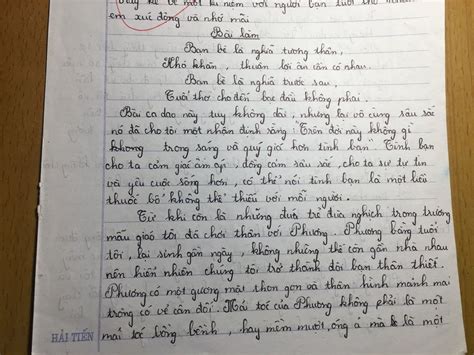 Hãy kể về một kỉ niệm với người bạn tuổi thơ khiến
em xúc động và nhớ mãi
Bài làm
Bạn bè là nghĩa tương thân,
Khó khăn, thuận lợi ân cần có nhau.
Bạn bè là nghĩa trước sau,
Tuổi thơ cho đến bạc đầu không phai.
Bài ca dao này tuy không dài, nhưng lại vô cùng sâu sắc
nó đã cho tôi một nhận định rằng "Trên đời này không gì
khong trong sáng và quý giá hơn tình bạn". Tình bạn
cho ta cảm giác ấm áp, đồng cảm sâu sắc, cho ta sự tự tin
và yêu cuộc sống hơn, có thể nói tình bạn là một liều
thuốc bổ không thể thiếu với mỗi người.
Từ khi còn là những đứa trẻ đùa nghịch trong trường
mẫu giáo tôi đã chơi thân với Phương. Phương bằng tuổi
tôi, lại sinh gần ngày, không những thế còn gần nhà nhau
nên hiển nhiên chúng tôi trở thành đôi bạn thân thiết.
Phương có một gương mặt thon gọn và thân hình mảnh mai
trông có vẻ cân đối. Mái toc của Phương không phải là một
mái toc bồng bềnh, hay mềm mượt, óng ả mà là một
HẢI TIẾN